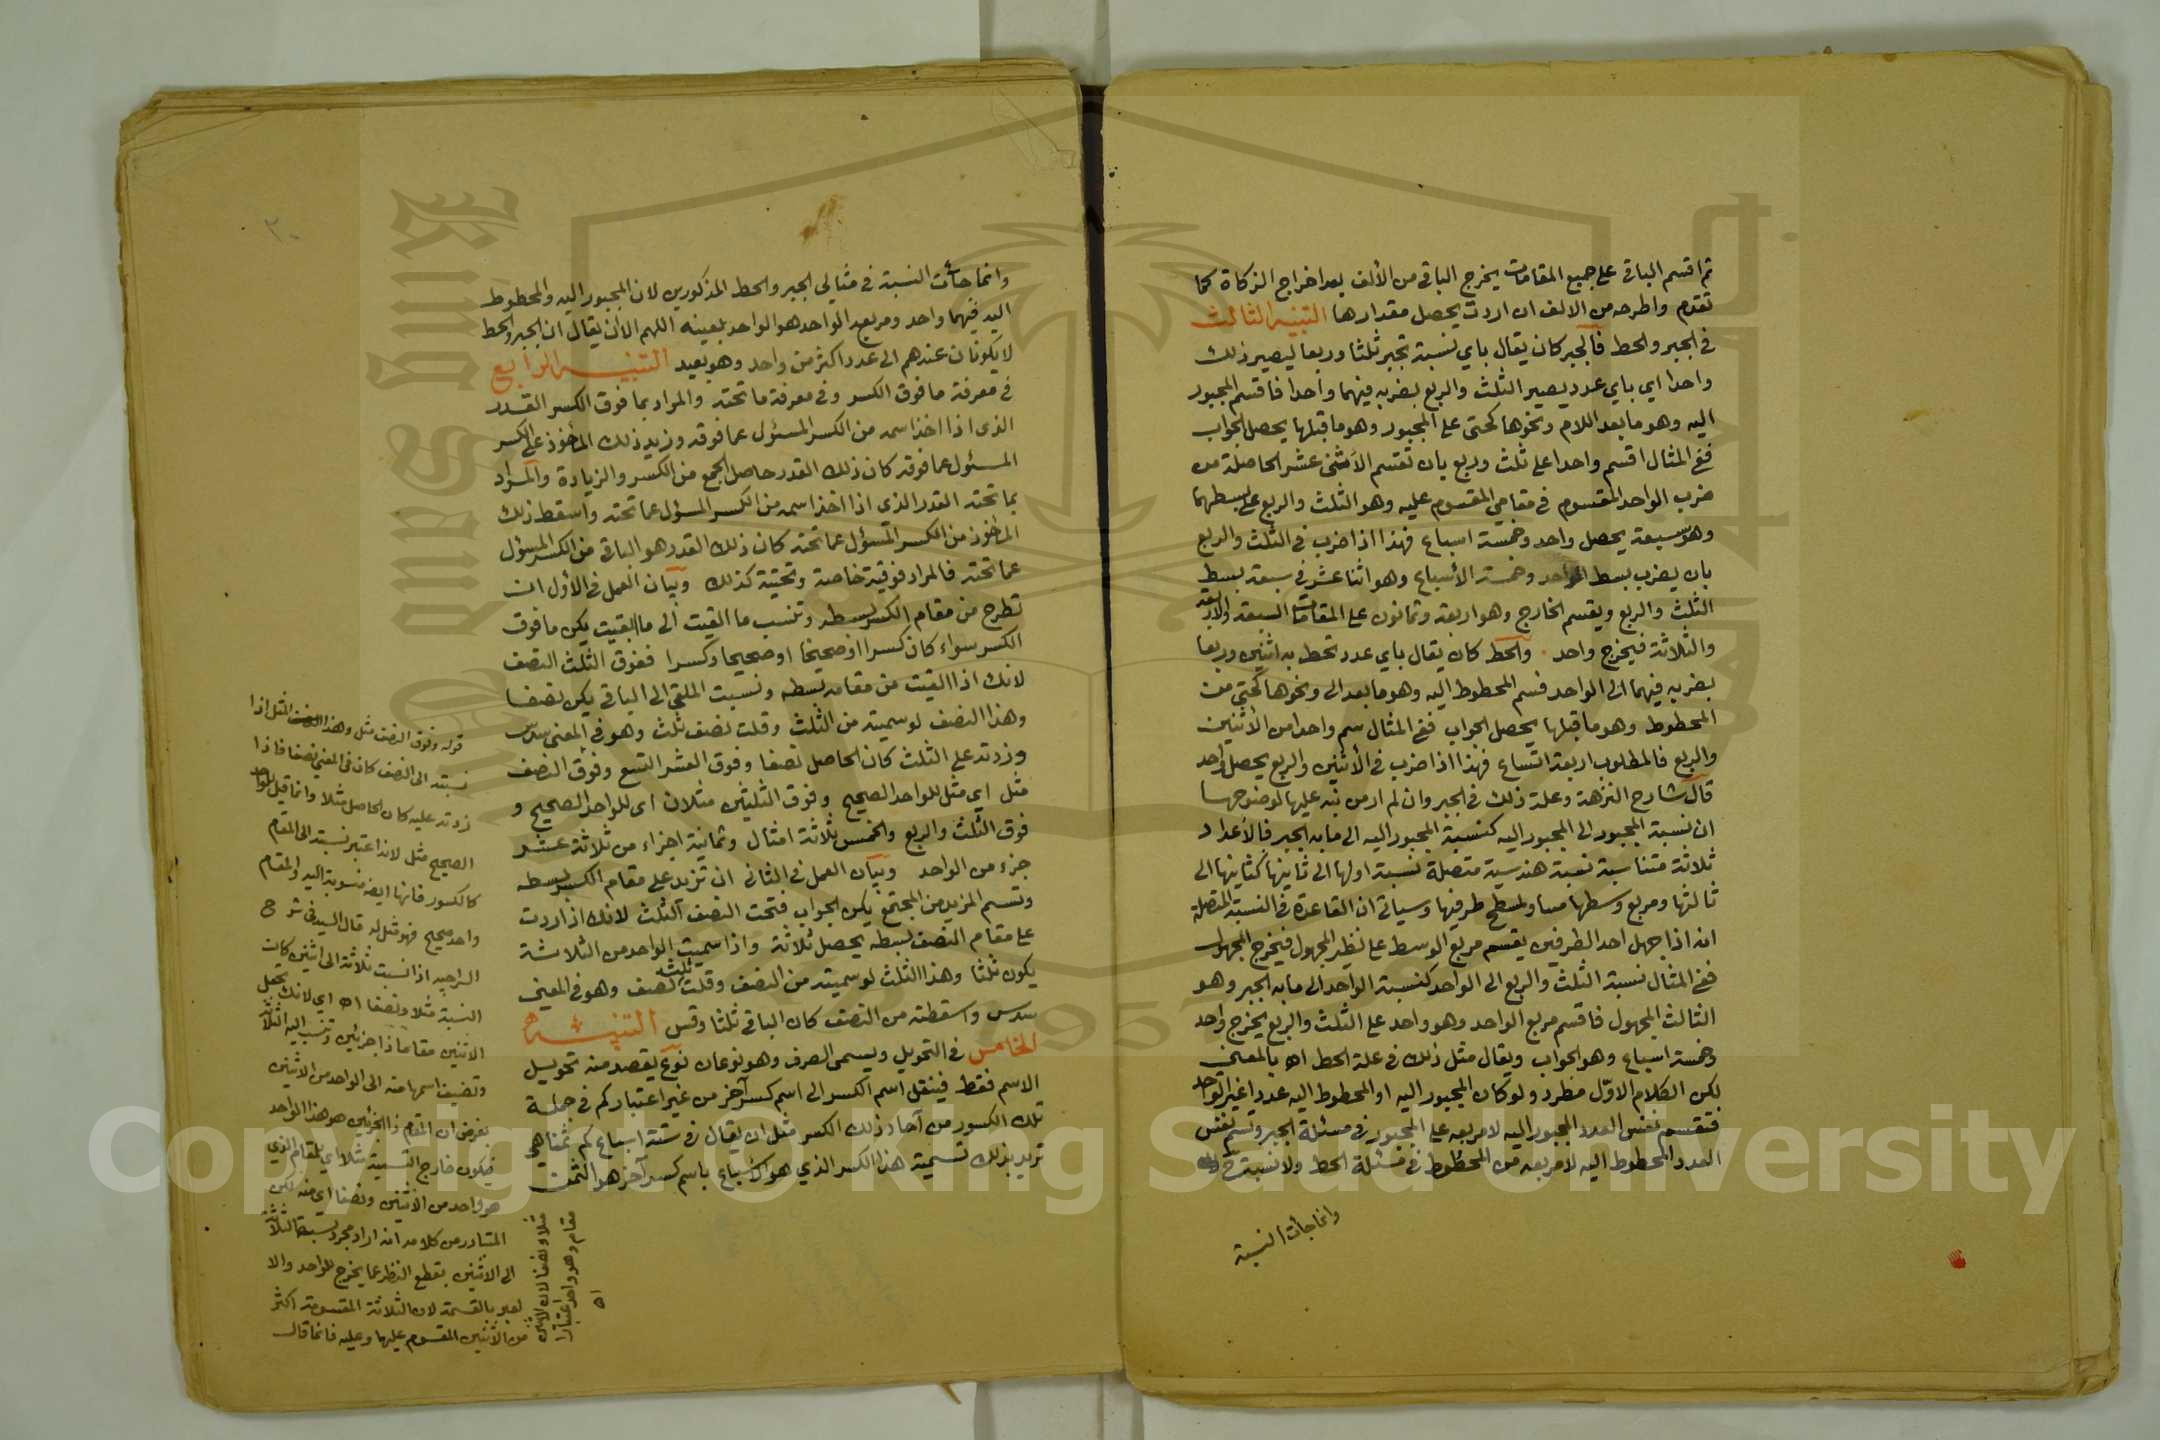 ثم اقسم الباقي على جميع المقامات يخرج الباقي من الألف بعد اخراج الزكاة كما
تقدم واطرحه من الالف ان اردت يحصل مقدارها التنبيه الثالث
في الجبر والحط فالجبر كان يقال باي نسبة تجبر ثلثا وربعا ليصير ذلك
واحدا اي باي عدد يصير الثلث والربع بضربه فيهما واحدا فاقسم المجبور
اليه وهو ما بعد اللام ونحوها كحتى على المجبور وهو ما قبلها يحصل الجواب
ففي المثال اقسم واحدا على ثلث وربع بان تقسم الاثنى عشر الحاصلة من
ضرب الواحد المقسوم في مقامي المقسوم عليه وهو الثلث والربع على بسطهما
وهو سبعة يحصل واحد وخمسة اسباع فهذا اذا ضرب في الثلث والربع
بان يضرب بسط الواحد وخمسة الأسباع وهو اثنا عشر في سبعة بسط
الثلث والربع ويقسم الخارج وهو اربعة وثمانون على المقامات السبعة والاربعة
والثلاثة فيخرج واحد والحط كان يقال باي عدد تحط به اثنين وربعا
بضربه فيهما الى الواحد فسم المحطوط اليه وهو ما بعد الى ونحوها كحتى من
المحطوط وهو ما قبلها يحصل الجواب ففي المثال سم واحدا من الأثنين
والربع فالمطلوب اربعة اتساع فهذا اذا ضرب في الأثنين والربع يحصل واحد
قال شارح النزهة وعلة ذلك في الجبر وان لم ار من نبه عليها لوضوحها
ان نسبة المجبور الى المجبور اليه كنسبة المجبور اليه الى ما به الجبر فالأعداد
ثلاثة متناسبة نسبة هندسية متصلة نسبة اولها الى ثانيها كثانيها الى
ثالثها ومربع وسطها مساو لمسطح طرفيها وسياتي ان القاعدة في النسبة المتصلة
انه اذا جهل احد الطرفين يقسم مربع الوسط على نظير المجهول فيخرج المجهول
ففي المثال نسبة الثلث والربع الى الواحد كنسبة الواحد الى ما به الجبر وهو
الثالث المجهول فاقسم مربع الواحد وهو واحد على الثلث والربع يخرج واحد
وخمسة اسباع وهو الجواب ويقال مثل ذلك في علة الحط اه بالمعنى
لكن الكلام الاول مطرد ولو كان المجبور اليه او المحطوط اليه عددا غير الواحد
فتقسم نفس العدد المجبور اليه لا مربعه على المجبور في مسئلة الجبر وتسم نفس
العدد المحطوط اليه لا مربعه من المحطوط في مسئلة الحط ولا نسبة ح
وانما جأت النسبة
٢٠
وانما جأت النسبة في مثالي الجبر والحط المذكورين لان المجبور اليه والمحطوط
اليه فيهما واحد ومربع الواحد هو الواحد بعينه اللهم الا ان يقال ان الجبر والحط
لا يكونان عندهم الى عدد اكثر من واحد وهو بعيد التنبيه الرابع
في معرفة ما فوق الكسر وفي معرفة ما تحته والمراد بما فوق الكسر القدر
الذي اذا اخذ اسمه من الكسر المسئول عما فوقه وزيد ذلك المأخوذ على الكسر
المسئول عما فوقه كان ذلك القدر حاصل الجمع من الكسر والزيادة والمراد
بما تحته القدر الذي اذا اخذ اسمه من الكسر المسؤل عما تحته واسقط ذلك
المأخوذ من الكسر المسؤل عما تحته كان ذلك القدر هو الباقي من الكسر المسؤل
عما تحته فالمراد فوقية خاصة وتحتية كذلك وبيان العمل في الأول ان
تطرح من مقام الكسر بسطه وتنسب ما القيت الى ما ابقيت يكن ما فوق
الكسر سواء كان كسرا او صحيحا او صحيحا وكسرا ففوق الثلث النصف
لانك اذا القيت من مقامه بسطه ونسبت الملقى الى الباقي يكن نصفا
وهذا النصف لو سميته من الثلث وقلت نصف ثلث وهو في المعنى سدس
وزدته على الثلث كان الحاصل نصفا وفوق العشر التسع وفوق النصف
مثل اي مثل للواحد الصحيح وفوق الثلثين مثلان اى للواحد الصحيح و
فوق الثلث والربع والخمس ثلاثة امثال وثمانية اجزاء من ثلاثة عشر
جزء من الواحد وبيان العمل في الثاني ان تزيد على مقام الكسر بسطه
وتسم المزيد من المجتمع يكن الجواب فتحت النصف الثلث لانك اذا زدت
على مقام النصف بسطه يحصل ثلاثة واذا سميت الواحد من الثلاثة
يكون ثلثا وهذا الثلث لو سميته من النصف وقلت ثلث نصف وهو في المعنى
سدس واسقطته من النصف كان الباقي ثلثا وقس التنبيه
الخامس في التحويل ويسمى الصرف وهو نوعان نوع يقصد منه تحويل
الاسم فقط فينقل اسم الكسر الى اسم كسر آخر من غير اعتبار كم في جملة
تلك الكسور من آحاد ذلك الكسر مثل ان يقال في ستة اسباع كم ثمنا هي
تريد بذلك تسمية هذا الكسر الذي هو الأسباع باسم كسر آخر هو الثمن
قوله وفوق النصف مثل وهذا المثل اذا
نسبته الى النصف كان في المعنى نصفا فاذا
زدته عليه كان الحاصل مثلا وانما قيل للواحد
الصحيح مثل لانه اعتبر نسبته الى المقام
كالكسور فانها ايضا منسوبة اليه والمقام
واحد صحيح فهو مثل له قال السيد في شرح
الراجبه اذا نسبت ثلاثة الى اثنين كانت
النسبة مثلا ونصفا اه اي لانك تجعل
الاثنين مقاما ذا جزئين وتنسب اليه الثلاثة
وتضيف اسمها منه الى الواحد من الاثنين
بفرض ان المقام ذا الجزئين هو هذا الواحد
فيكون خارج التسمية مثلا اي للمقام الذي
هو واحد من الاثنين ونصفا اي منه لكن
المتبادر من كلامه انه اراد مجرد نسبة الثلاثة
الى الاثنين بقطع النظر عما يخرج للواحد والا
لعبر بالقسمة لان الثلاثة المقسومة اكثر
من الأثنين المقسوم عليها وعليه فانما قال
مثلا ونصفا لان الاثنين
مقام وهو واحد اعتبارا
اه
Copyright © King Saud University
King Saud University
1957